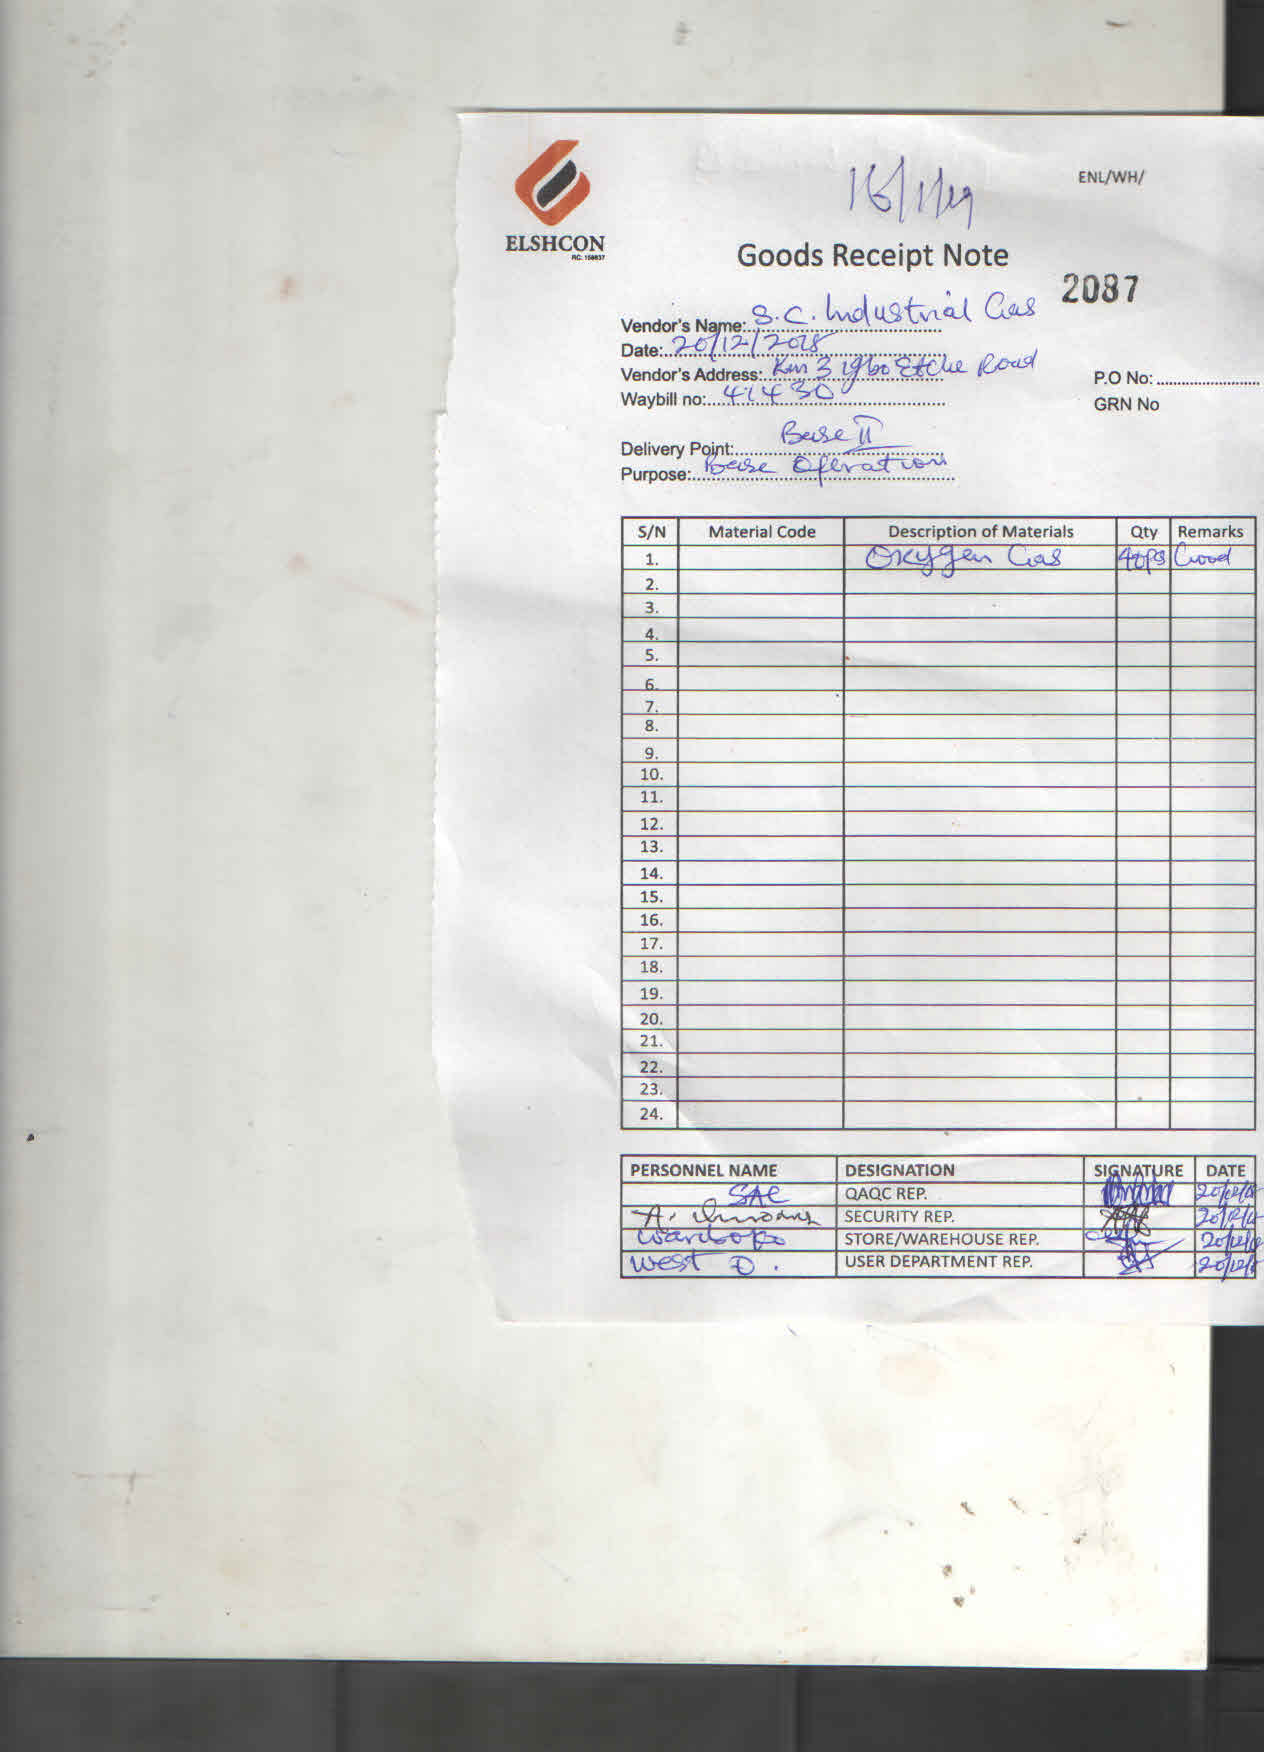 16/1/19
ENL/WH/
ELSHCON
RC: 156637
Goods Receipt Note
2087
Vendor's Name: S.C. Industrial Gas
Date: 20/12/2018
Vendor's Address: Km 3 Igbo Etche Road
P.O No:
Waybill no: 41430
GRN No
Delivery Point: Base II
Purpose: Base Operation
S/N Material Code Description of Materials Qty Remarks
1. Oxygen Gas Good
2.
3.
4.
5.
6.
7.
8.
9.
10.
11.
12.
13.
14.
15.
16.
17.
18.
19.
20.
21.
22.
23.
24.
PERSONNEL NAME DESIGNATION SIGNATURE DATE
SAC QAQC REP.
A. SECURITY REP.
Wariboko STORE/WAREHOUSE REP.
West D. USER DEPARTMENT REP.